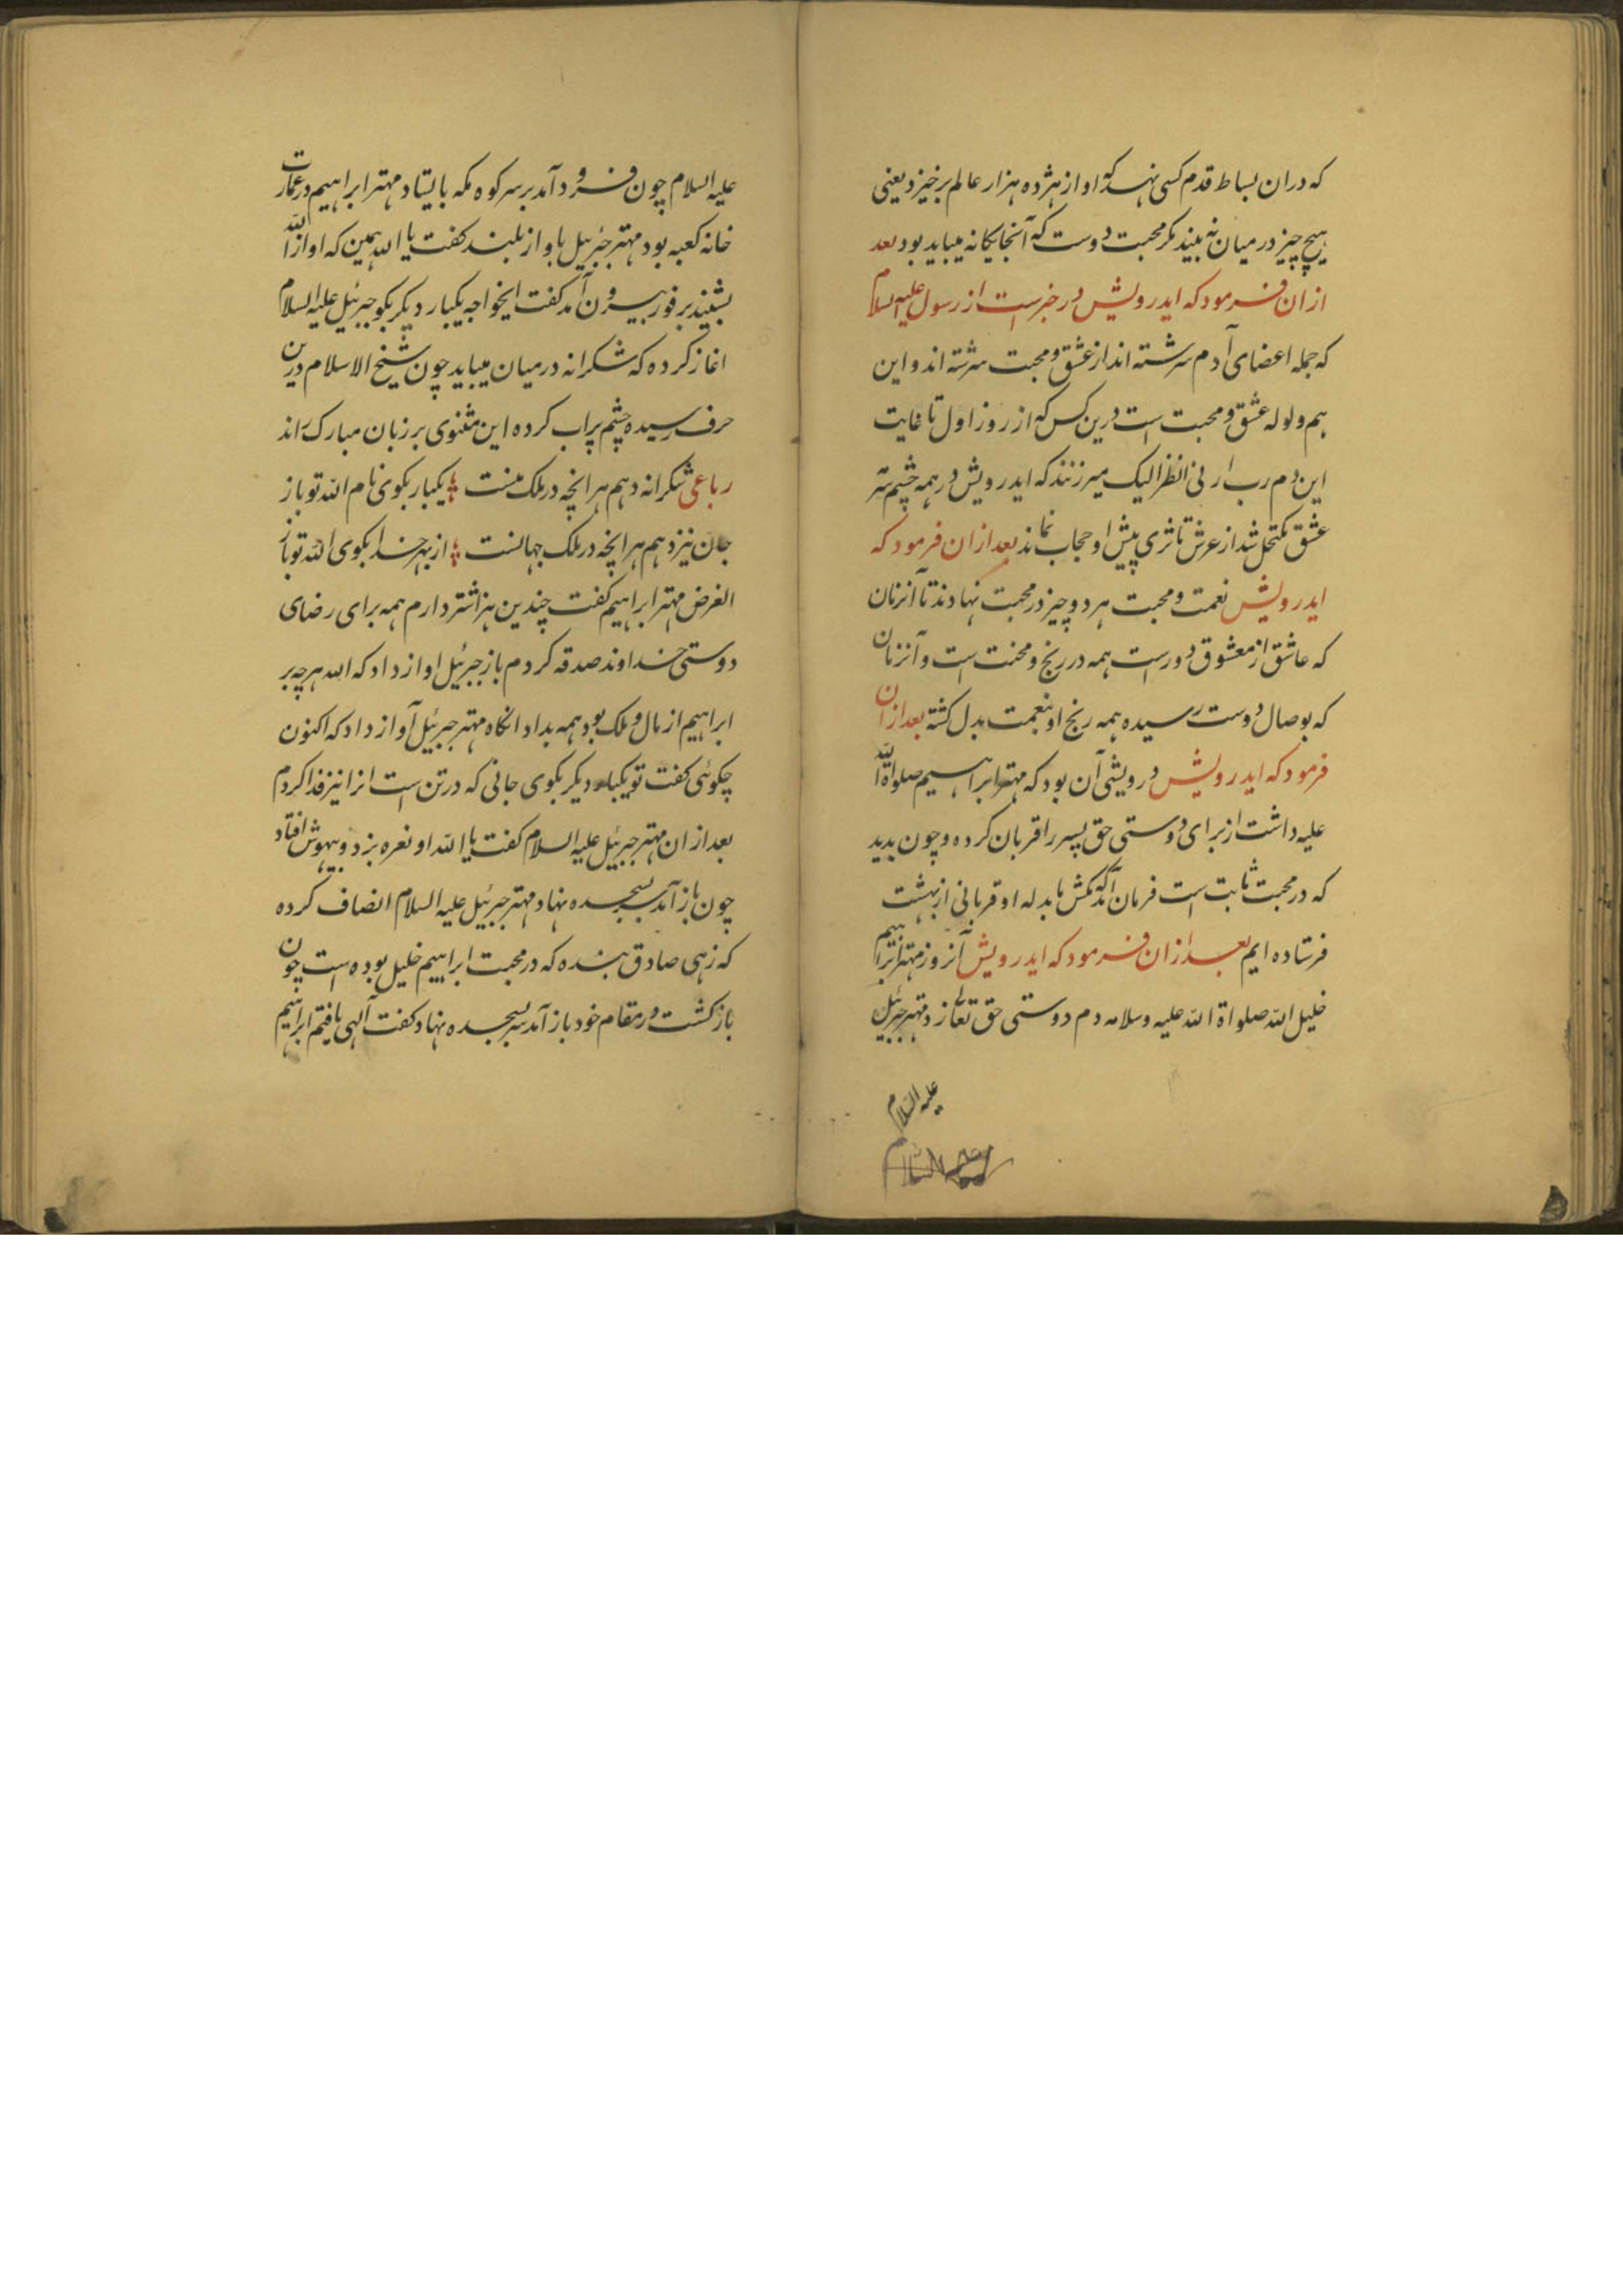 که دران بساط قدم کسی نهد که او از هژده هزار عالم برخیزد یعنی
هیچ چیز در میان نه بیند مکر محبت دوست که آنجا یکانه میباید بود بعد
ازان فرمود که ایدرویش در خبرست از رسول علیه السلام
که جمله اعضای آدم سرشته اند از عشق و محبت سرشته اند و این
هم ولوله عشق و محبت است درین کس که از روز اول تا غایت
این دم رب ارنی انظر الیک میزنند که ایدرویش در همه چشم
عشق مکتحل شد از عرش تا ثری پیش او حجاب نماند بعد ازان فرمود که
ایدرویش نعمت و محبت هر دو چیز در محبت نهادند تا آنزمان
که عاشق از معشوق دورست همه در رنج و محنت است و آنزمان
که بوصال دوست رسیده همه رنج او بنعمت بدل کشته بعد ازان
فرمود که ایدرویش درویشی آن بود که مهتر ابراهیم صلواة الله
علیه داشت از برای دوستی حق پسر را قربان کرده و چون بدید
که در محبت ثابت است فرمان آمد که مکش ما بدله او قربانی از بهشت
فرستاده ایم بعد ازان فرمود که ایدرویش آنروز مهتر ابراهیم
خلیل الله صلواة الله علیه وسلامه دم دوستی حق تعالی زد مهتر جبرئیل
علیه السلام
علیه السلام چون فرود آمد بر سر کوه مکه بایستاد مهتر ابراهیم در عمارت
خانه کعبه بود مهتر جبرئیل باواز بلند کفت یا الله همین که اواز الله
بشنید بر فور بیرون آمد کفت ایخواجه یکبار دیکر بکو جبرئیل علیه السلام
اغاز کرده که شکرانه در میان میباید چون شیخ الاسلام درین
حرف رسیده چشم پراب کرده این مثنوی بر زبان مبارک راند
رباعی شکرانه دهم هر انچه در ملک منست یکبار بکوی نام الله تو باز
جان نیز دهم هر انچه در ملک جهانست از بهر خدا بکوی الله تو باز
الغرض مهتر ابراهیم کفت چندین هزار شتر دارم همه برای رضای
دوستی خداوند صدقه کردم باز جبرئیل اواز داد که الله هر چه بر
ابراهیم از مال و ملک بود همه بداد انکاه مهتر جبرئیل آواز داد که اکنون
چکوئی کفت تو یکبار دیکر بکوی جانی که در تن است انرا نیز فدا کردم
بعد ازان مهتر جبرئیل علیه السلام کفت یا الله او نعره بزد و بیهوش افتاد
چون باز آمد بسجده نهاد مهتر جبرئیل علیه السلام انصاف کرده
که زهی صادق بنده که در محبت ابراهیم خلیل بوده است چون
باز کشت در مقام خود باز آمد سر بسجده نهاد کفت آلهی یافتم ابراهیم